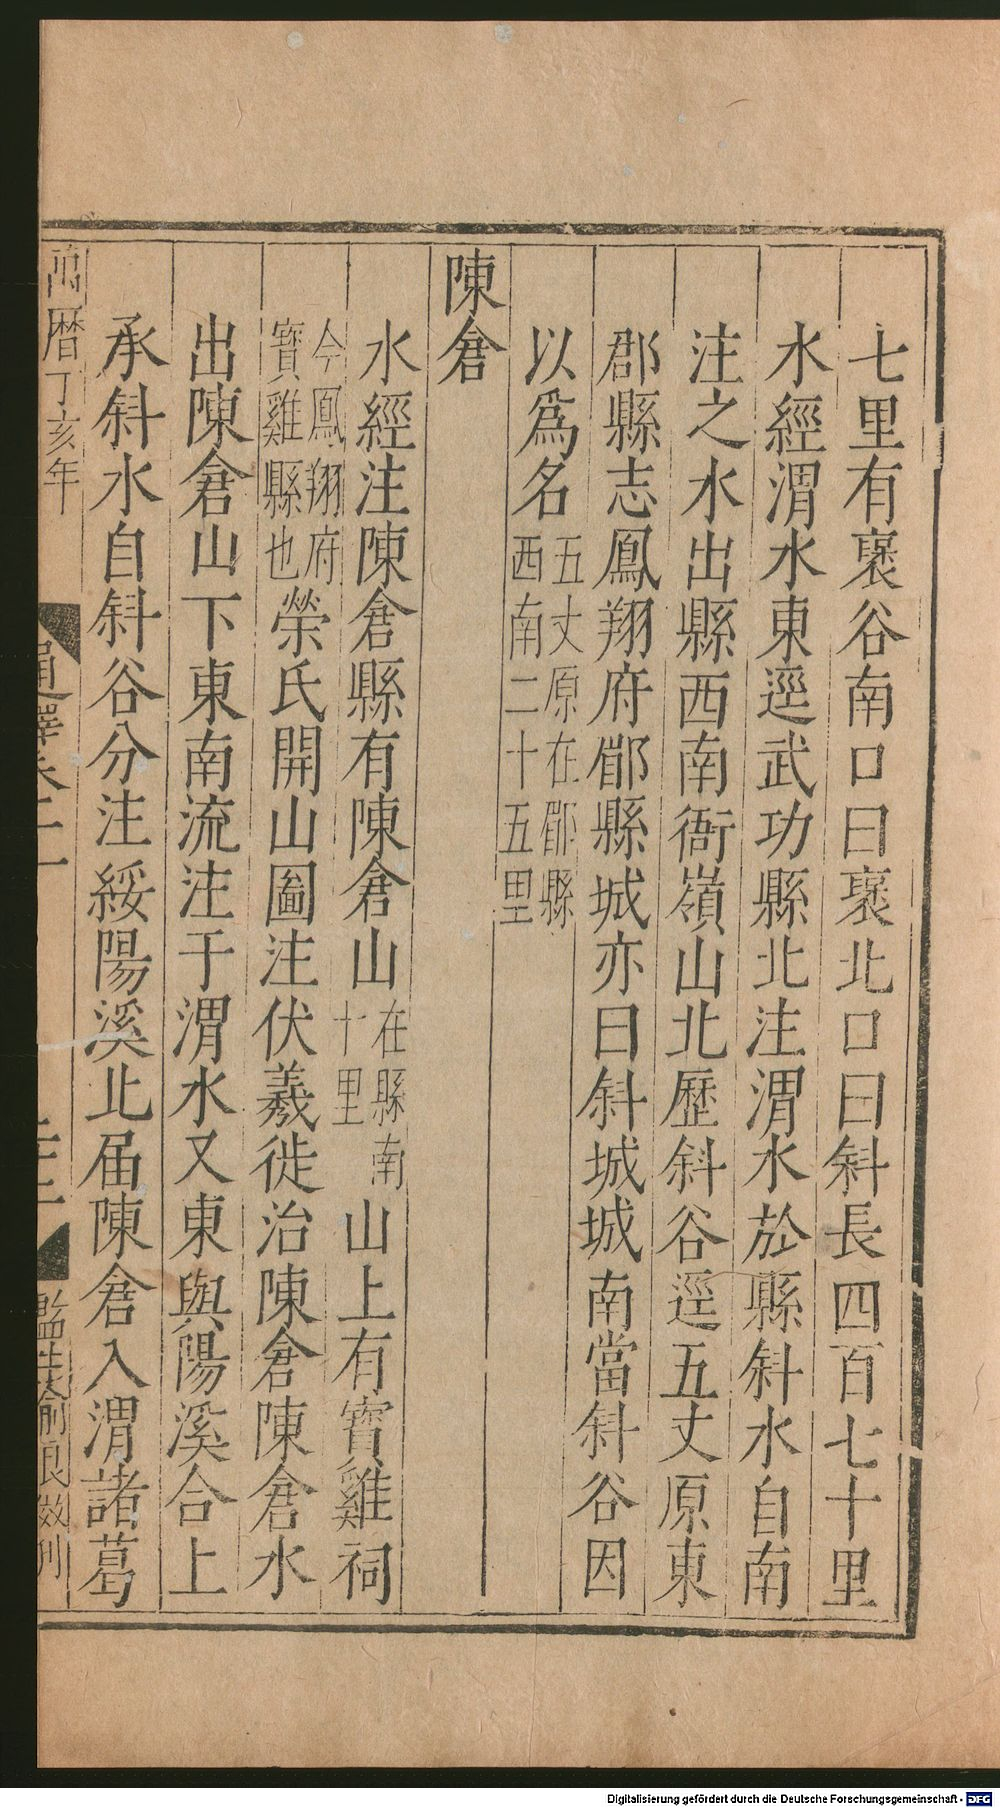 七里有褒谷南口曰褒北口曰斜長四百七十里
水經渭水東逕武功縣北注渭水於縣斜水自南
注之水出縣西南衙嶺山北歷斜谷逕五丈原東
郡縣志鳳翔府郿縣城亦曰斜城城南當斜谷因
以爲名五丈原在郿縣西南二十五里
陳倉
水經注陳倉縣有陳倉山在縣南十里山上有寶雞祠
今鳳翔府寶雞縣也榮氏開山圖注伏羲徙治陳倉陳倉水
出陳倉山下東南流注于渭水又東與陽溪合上
承斜水自斜谷分注綏陽溪北届陳倉入渭諸葛
萬曆丁亥年
通釋卷十一
監生喻良㳟刊
Digitalisierung gefördert durch die Deutsche Forschungsgemeinschaft - DFG